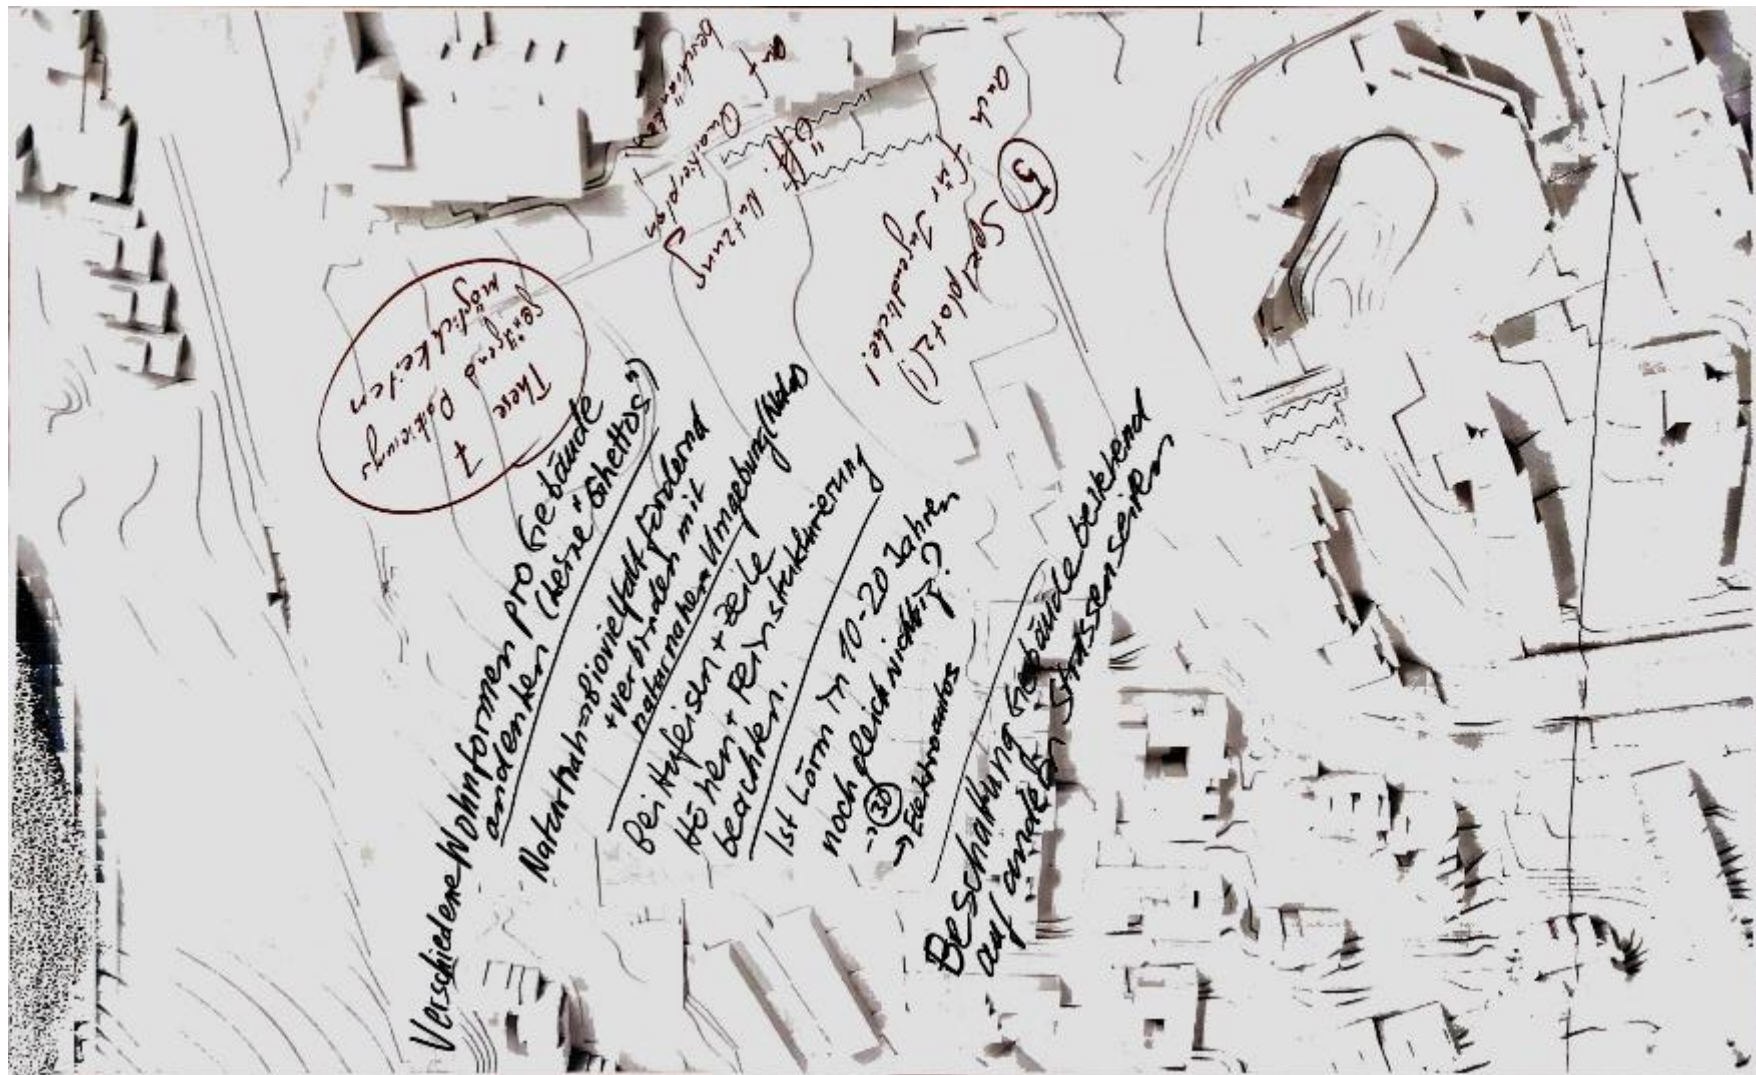 Verschiedene Wohnformen pro Gebäude
andenken (keine "Ghettos")
Naturnah = Biovielfalt fördernd
+ verbinden mit
naturnaher Umgebung (Wald)
Bei Hufeisen + Zeile
Höhen + Feinstrukturierung
beachten.
Ist Lärm in 10-20 Jahren
noch gleich wichtig?
-> 30
-> Elektroautos
Beschattung Gebäude beitehend
auf anderen Strassenseiten
These
genügend Parkierungs
möglichkeiten
7
5
Spielplatz (!)
auch für Jugendliche!
Öff. Nutzung
auf Quartierplan
beschränken